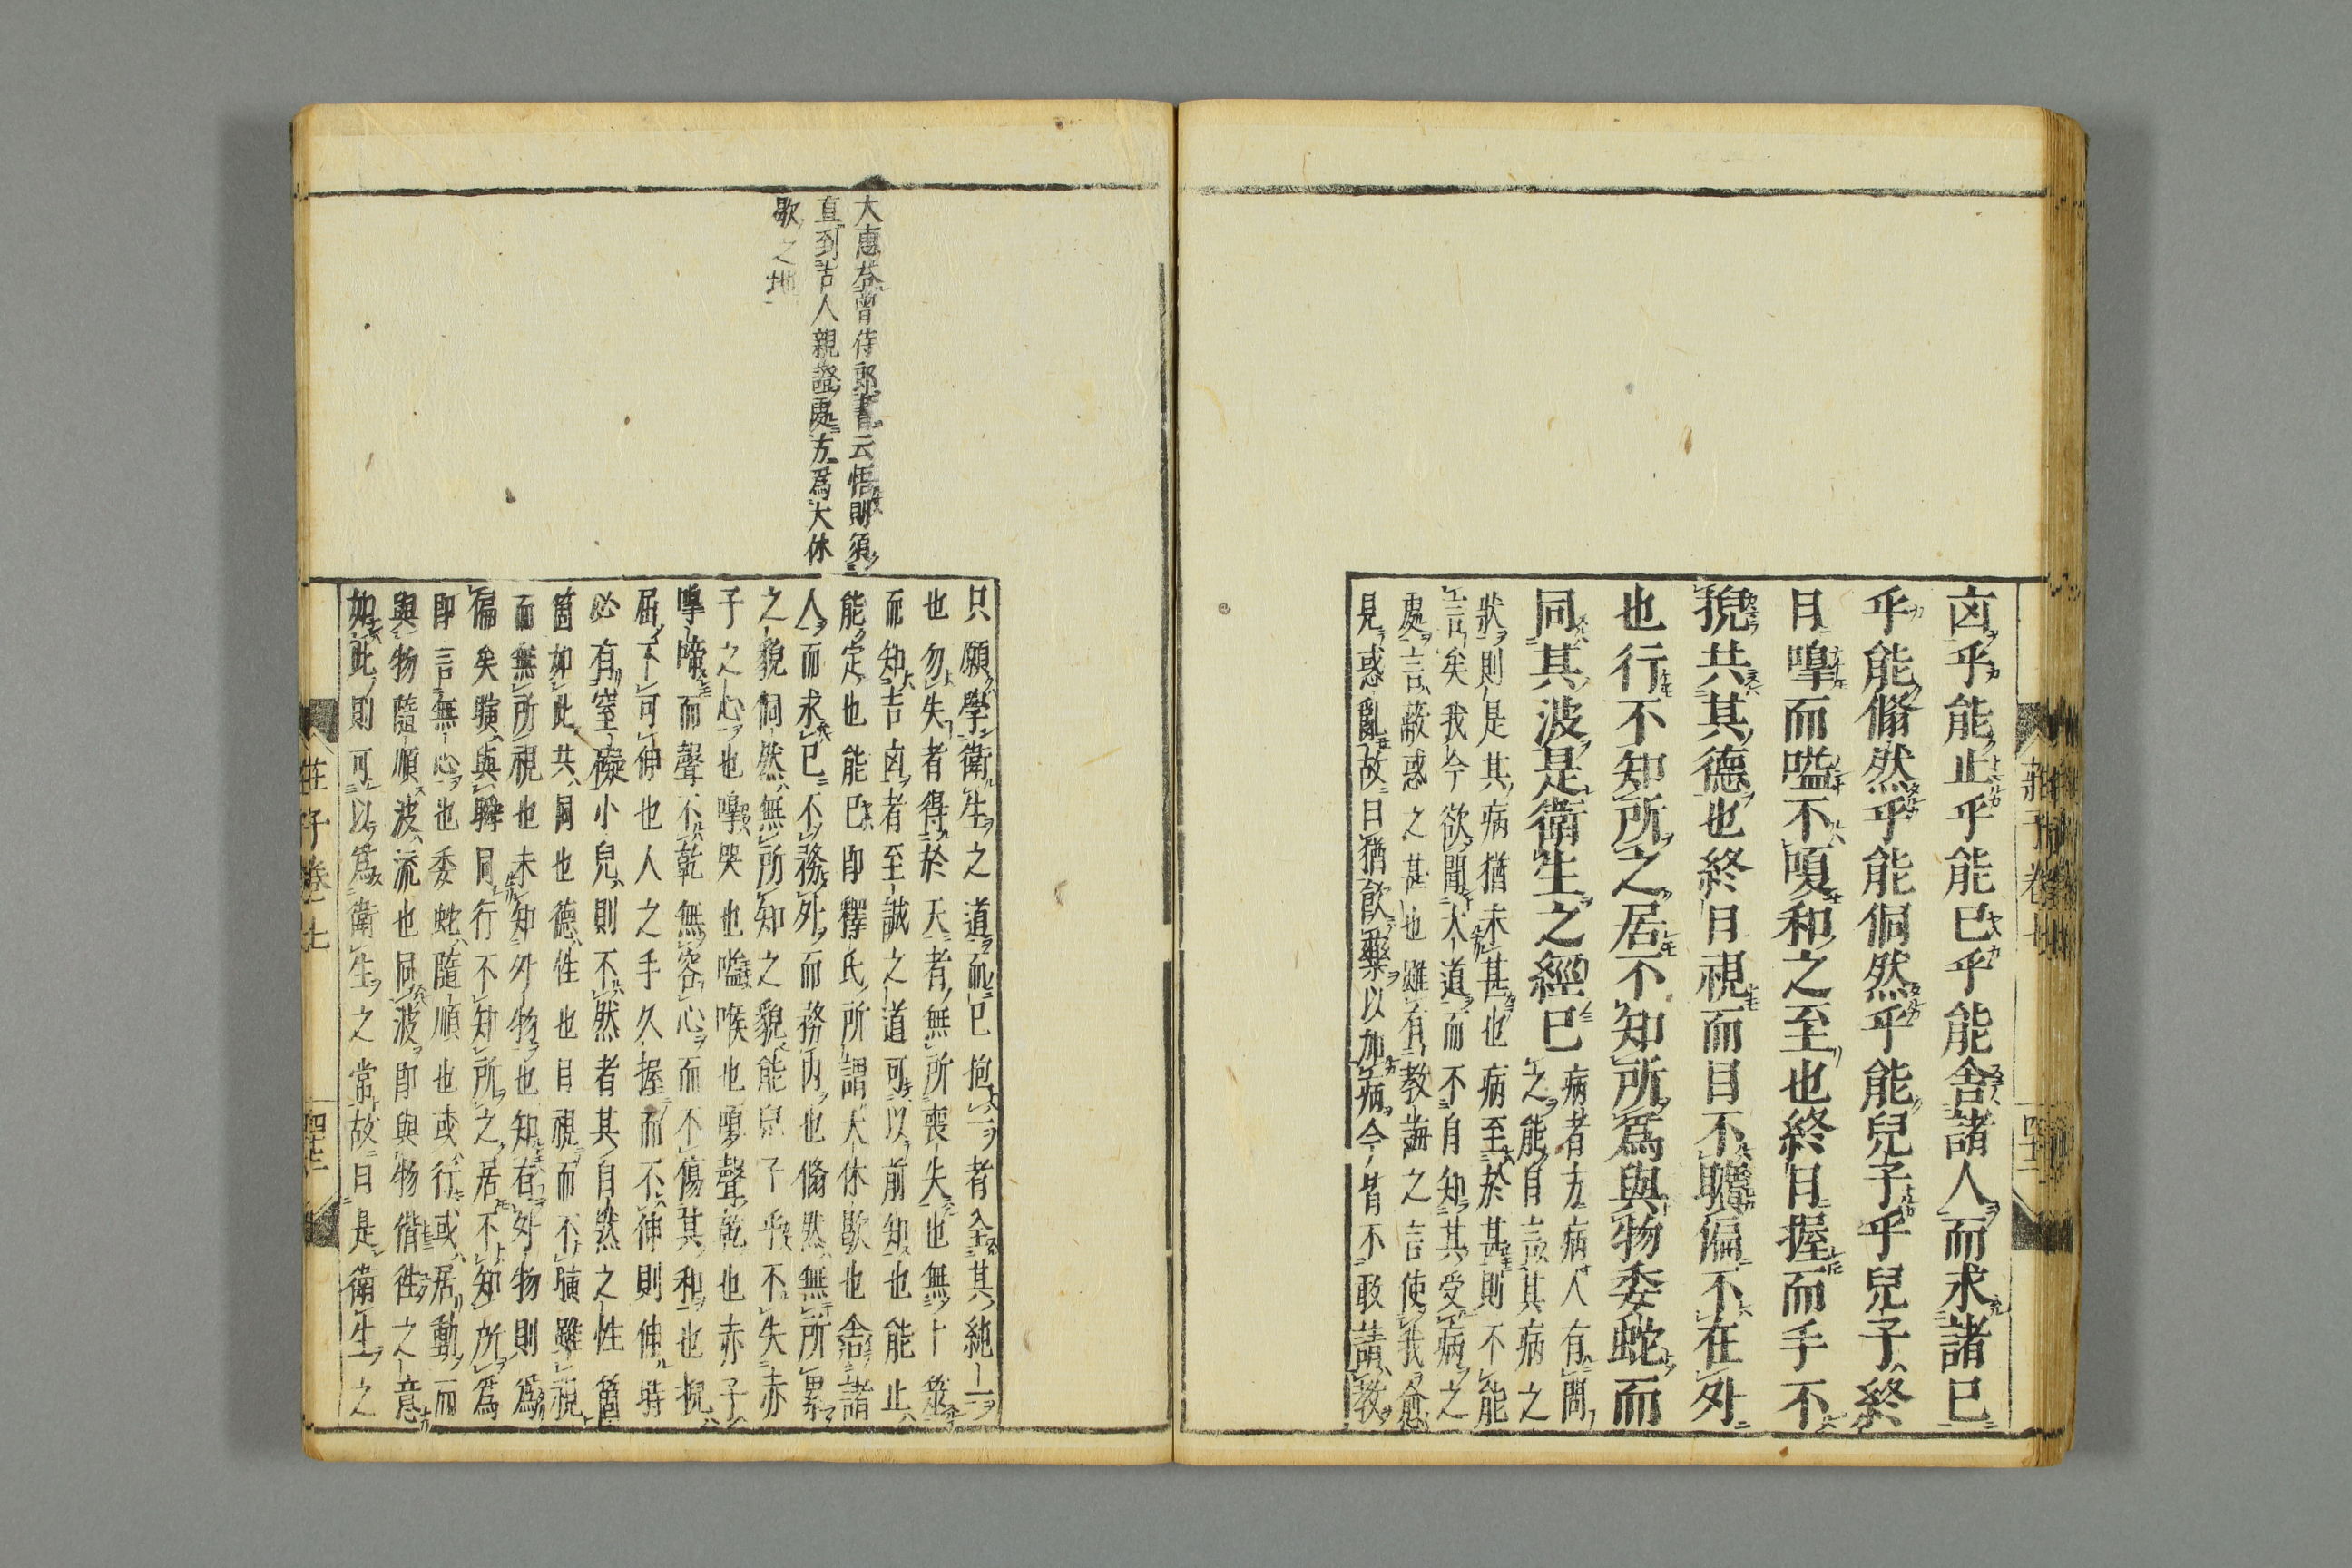 凶乎能止乎能已乎能舍諸人而求諸己
乎能翛然乎能侗然乎能兒子乎兒子終
日嘷而嗌不嗄和之至也終日握而手不
掜共其德也終日視而目不瞚偏不在外
也行不知所之居不知所爲與物委蛇而
同其波是衛生之經已
病者方病人有問
之能自言其病之
狀則是其病猶未甚也病至於甚則不能
言矣我今欲聞大道而不自知其受病之
處言蔽惑之甚也雖有教誨之言使我愈
見惑亂故曰猶飲藥以加病今皆不敢請教
莊子卷七
四十二
大惠荅曾侍郎書云悟則須
直到古人親證處方爲大休
歇之地
只願學衛生之道而已抱一者全其純一
也勿失者得於天者無所喪失也無卜筮
而知吉凶者至誠之道可以前知也能止
能定也能已即釋氏所謂大休歇也舍諸
人而求己不務外而務内也翛然無所累
之貌侗然無所知之貌能兒子乎不失赤
子之心也嘷哭也嗌喉也嗄聲乾也赤子
嘷啼而聲不乾無容心而不傷其和也掜
屈不可伸也人之手久握而不伸則伸時
必有窒礙小兒則不然者其自然之性箇
箇如此共同也德性也目視而不瞚雖視
而無所視也未知外物也知有外物則爲
偏矣瞚與瞬同行不知所之居不知所爲
即言無心也委蛇隨順也或行或居動而
與物隨順波流也同波即與物偕往之意
如此則可以爲衛生之常故曰是衛生之
莊子卷七